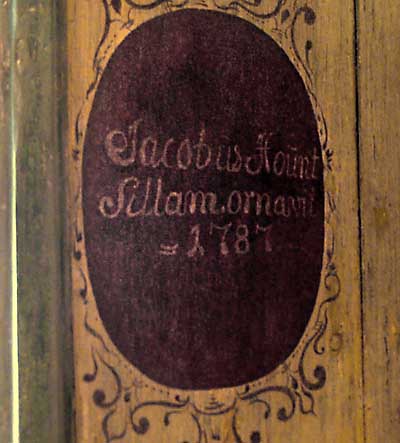 Jacobus Hount
Sillam.ornavit
= 1787